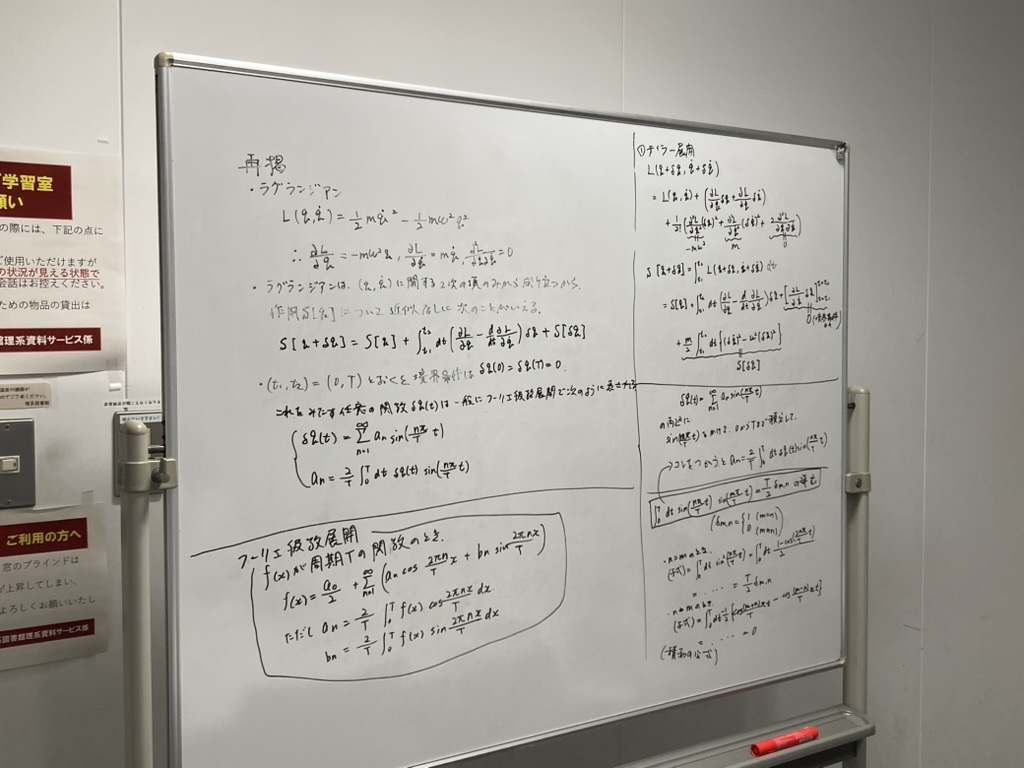 学習室
願い
の際には、下記の点に
ご使用いただけますが
の状況が見える状態で
会話はお控えください。
ための物品の貸出は
館理系資料サービス係
ご利用の方へ
窓のブラインドは
が上昇してしまい、
よろしくお願いいたし
系図書館理系資料サービス係
再掲
・ラグランジアン
L(q, q̇) = 1/2 m q̇² − 1/2 mω² q²
∴ ∂L/∂q = −mω²q, ∂L/∂q̇ = mq̇, ∂²L/∂q∂q̇ = 0
・ラグランジアンは、(q, q̇) に関する2次の項のみから成り立つから、
作用S[q]について近似なしに次のことがいえる。
S[q+δq] = S[q] + ∫_{t₁}^{t₂} dt (∂L/∂q − d/dt ∂L/∂q̇) δq + S[δq]
・(t₁, t₂) = (0, T) とおくと境界条件は δq(0) = δq(T) = 0.
これをみたす任意の関数 δq(t) は一般にフーリエ級数展開で次のように表せる
δq(t) = Σ_{n=1}^{∞} aₙ sin(nπ/T t)
aₙ = 2/T ∫₀^T dt δq(t) sin(nπ/T t)
フーリエ級数展開
f(x) が周期Tの関数のとき、
f(x) = a₀/2 + Σ_{n=1}^{∞} (aₙ cos 2πn/T x + bₙ sin 2πnx/T)
ただし aₙ = 2/T ∫₀^T f(x) cos 2πnx/T dx
bₙ = 2/T ∫₀^T f(x) sin 2πnx/T dx
①テイラー展開
L(q+δq, q̇+δq̇)
= L(q, q̇) + (∂L/∂q δq + ∂L/∂q̇ δq̇)
+ 1/2! (∂²L/∂q² (δq)² + ∂²L/∂q̇² (δq̇)² + 2 ∂²L/∂q∂q̇)
−mω² m 0
S[q+δq] = ∫_{t₁}^{t₂} L(q+δq, q̇+δq̇) dt
= S[q] + ∫_{t₁}^{t₂} dt (∂L/∂q − d/dt ∂L/∂q̇) δq + [∂L/∂q̇ δq]_{t=t₁}^{t=t₂}
0 (境界条件)
+ m/2 ∫_{t₁}^{t₂} {(δq̇)² − ω²(δq)²}
S[δq]
δq(t) = Σ_{n=1}^{∞} aₙ sin(nπ/T t)
の両辺に
sin(mπ/T t) をかけて、0からTまで積分して、
→コレをつかうと aₙ = 2/T ∫₀^T dt δq(t) sin(nπ/T t)
∫₀^T dt sin(nπ/T t) sin(mπ/T t) = T/2 δm,n の導出
(δm,n = { 1 (m=n) 0 (m≠n)
・n=mのとき、
(与式) = ∫₀^T dt sin²(nπ/T t) = ∫₀^T dt (1−cos(2nπ/T t))/2
= ‥‥ = T/2 δm,n
・n≠mのとき
(与式) = ∫₀^T dt 1/2 {cos((m−n)/T πt) − cos((m+n)/T πt)}
= ‥‥ = 0
(積和の公式)